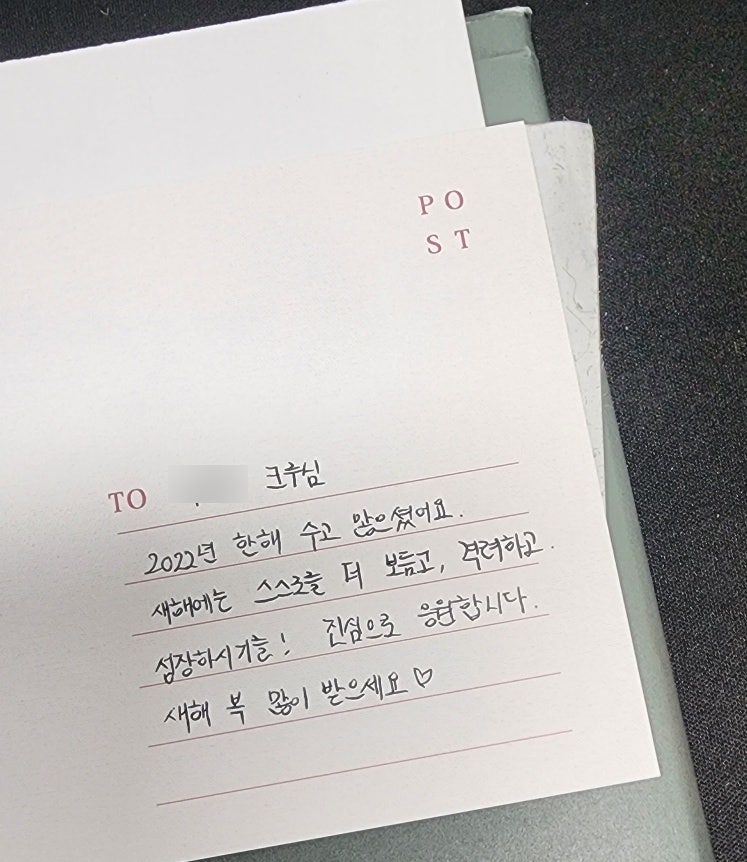 P O
S T
TO 크루님
2022년 한해 수고 많으셨어요.
새해에는 스스로를 더 보듬고, 격려하고.
성장하시기를! 진심으로 응원합니다.
새해 복 많이 받으세요♡